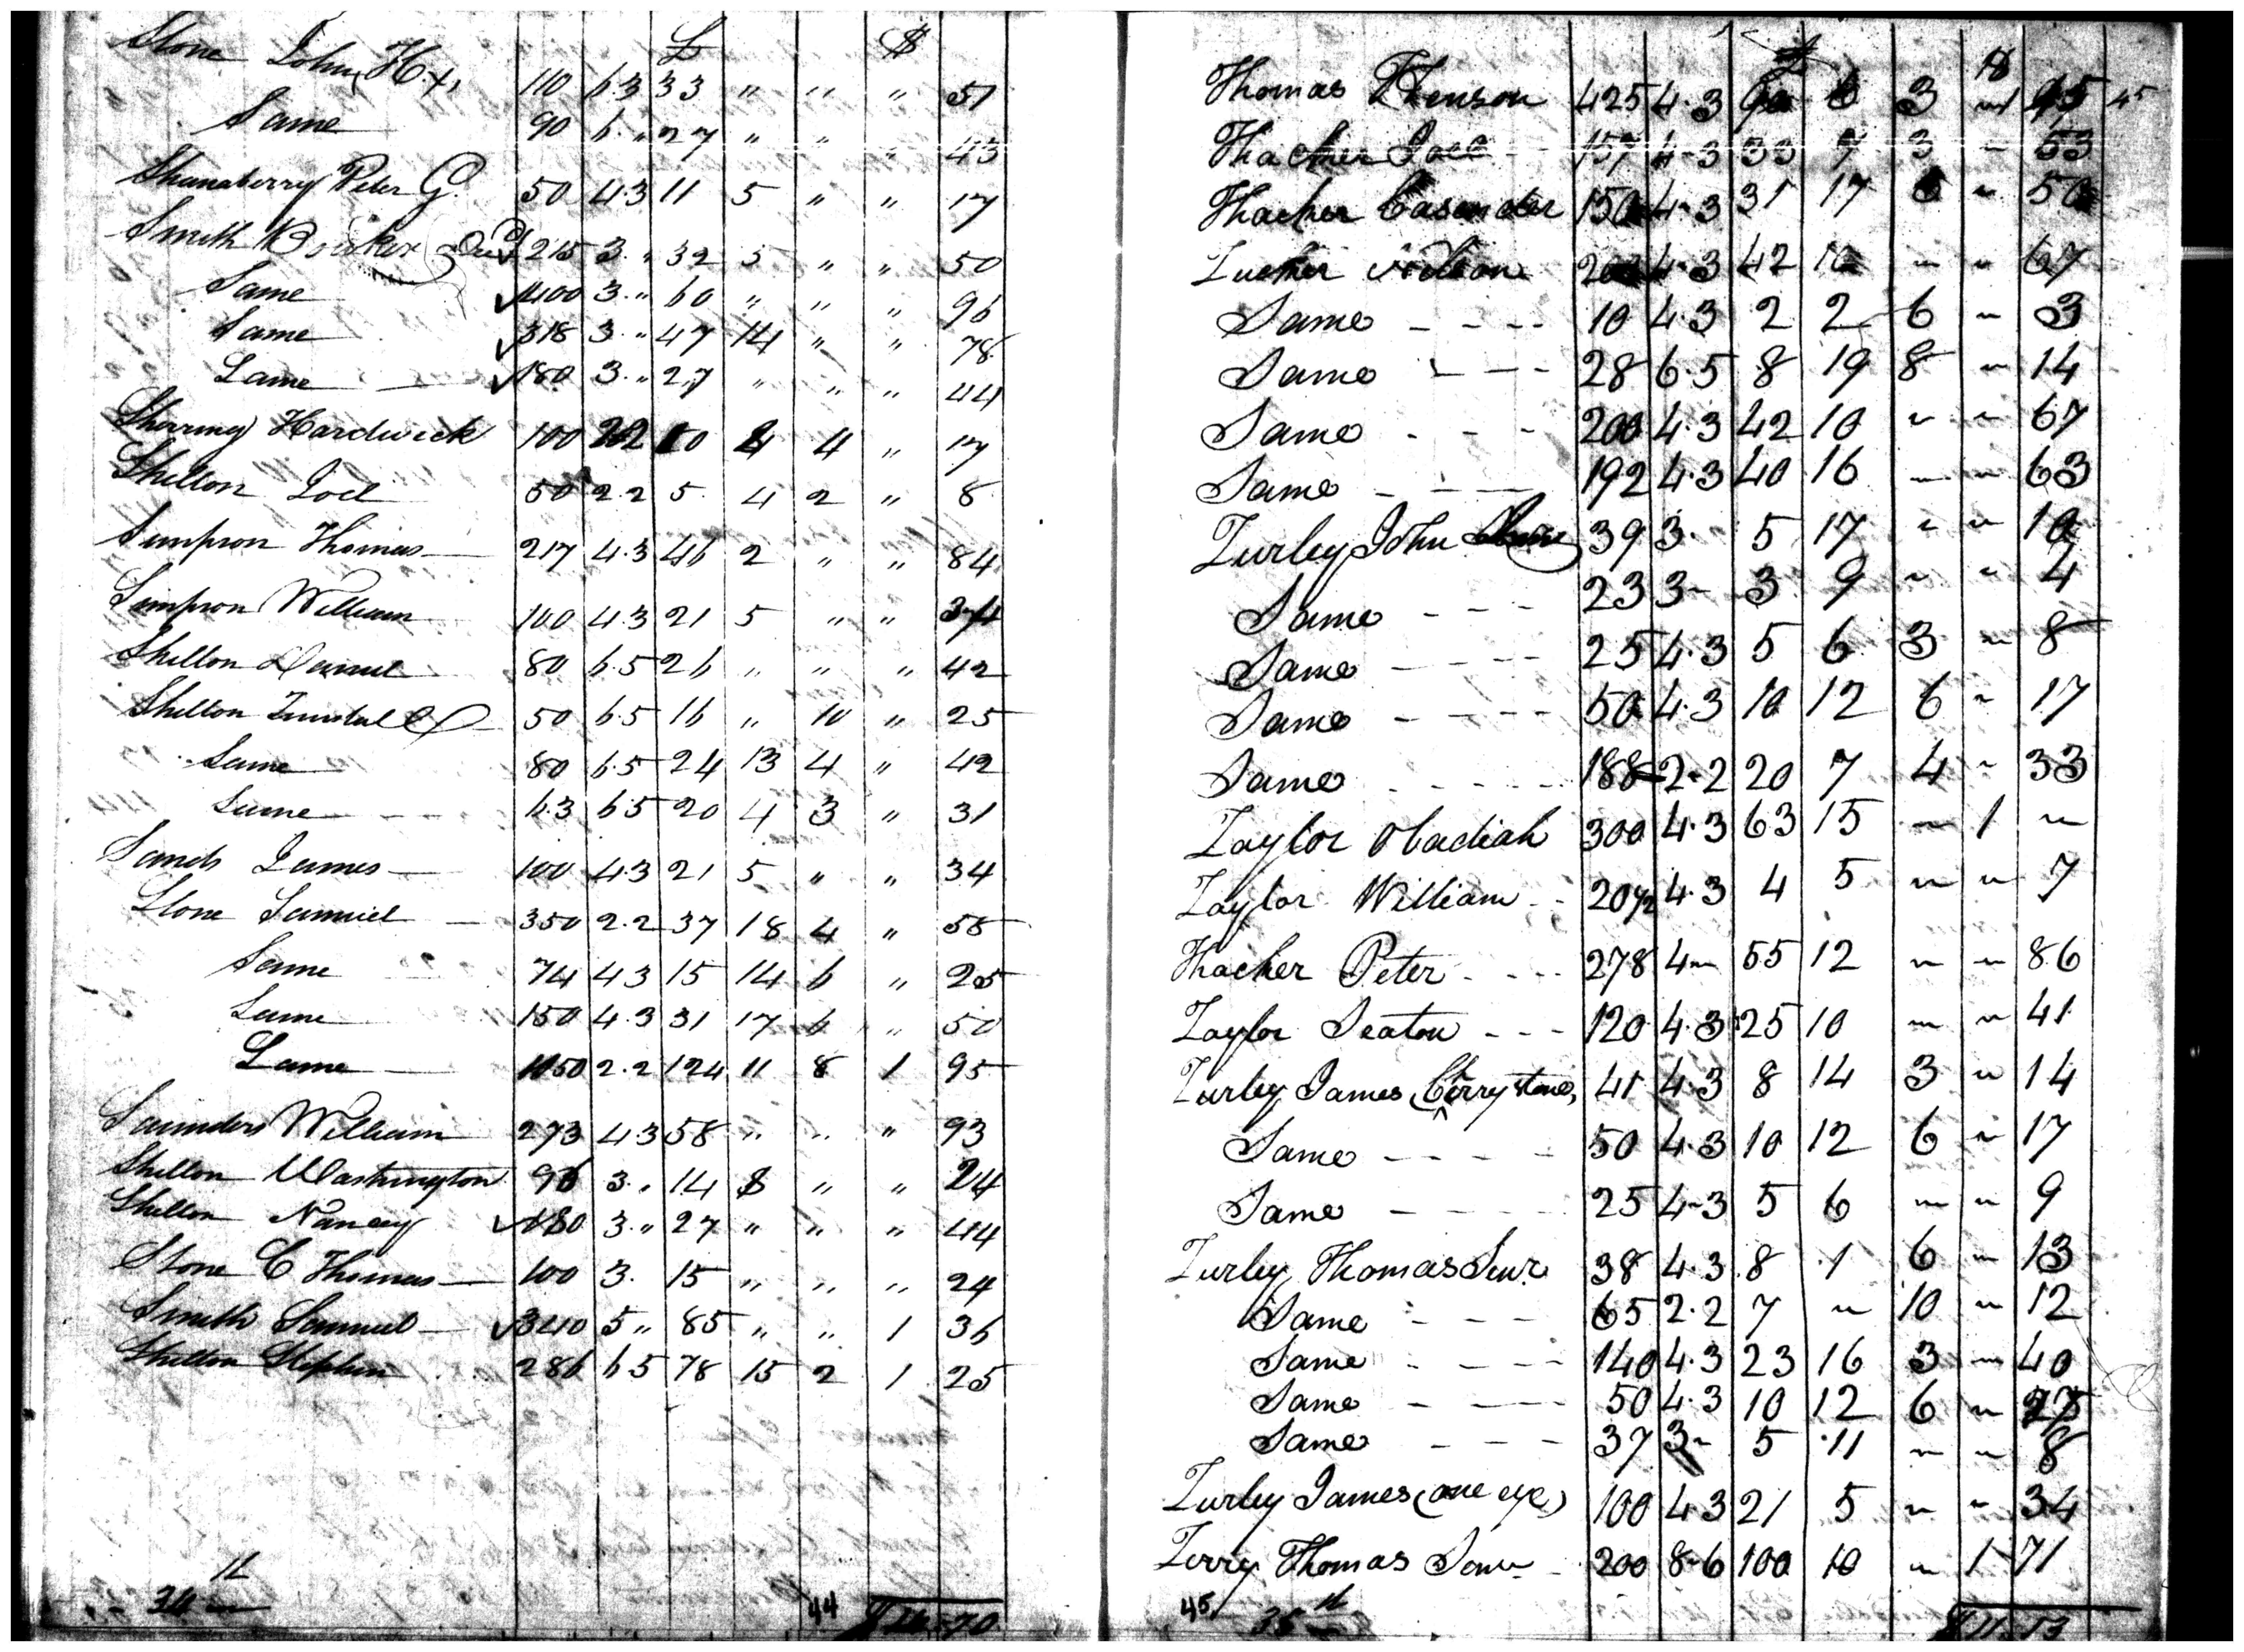 £ $
Stone John H. 110 6.3 33 " " " 51
Same 90 6. " 27 " " " 43
Shanaberry Peter G. 50 4.3 11 5 " " 17
Smith 215 3. " 32 5 " " 50
Same 400 3. " 60 " " " 96
Same 318 3. " 47 14 " " 78
Same 180 3. " 27 " " " 44
Sherring Hardwick 100 2 2 10 4 " 17
Shelton Joel 50 2.2 5 4 2 " 8
Simpson Thomas 217 4.3 46 2 " " 84
Simpson William 100 4.3 21 5 " " 34
Shelton Daniel 80 6.5 26 " " " 42
Shelton 50 6.5 16 " 10 " 25
Same 80 6.5 24 13 4 " 42
Same 63 6.5 20 4 3 " 31
Sands James 100 4.3 21 5 " " 34
Stone Samuel 350 2.2 37 18 4 " 58
Same 74 4 3 15 14 6 " 25
Same 150 4.3 31 17 6 " 50
Same 1150 2.2 124 11 8 1 95
Saunders William 273 4 3 58 " " " 93
Shelton Washington 96 3. " 14 8 " " 24
Shelton Nancy 180 3. " 27 " " " 44
Stone C Thomas 100 3. 15 " " " 24
Smith Samuel 340 5 " 85 " " 1 36
Shelton Stephen 286 6 5 78 15 2 1 25
44
$
Thomas 425 4.3 3 45
Thacher Joel 157 4-3 33 7 3 " 53
Thacher 150 4-3 31 17 " 50
4.3 42 10 " " 67
Same 10 4.3 2 2 6 " 3
Same 28 6.5 8 19 8 " 14
Same 200 4.3 42 10 " " 67
Same 192 4.3 40 16 " " 63
Turley John 39 3. 5 17 " " 10
Same 23 3- 3 9 " " 4
Same 25 4.3 5 6 3 " 8
Same 50 4.3 10 12 6 " 17
Same 188 2-2 20 7 4 " 33
Taylor Obadiah 300 4.3 63 15 " 1 "
Taylor William 20 1/2 4.3 4 5 " " 7
Thacher Peter 278 4 " 55 12 " " 86
Taylor Seaton 120 4.3 25 10 " " 41
Turley James (Cerrystone) 41 4.3 8 14 3 " 14
Same 50 4.3 10 12 6 " 17
Same 25 4-3 5 6 " " 9
Turley Thomas Senr. 38 4.3 8 1 6 " 13
Same 65 2.2 7 " 10 " 12
Same 140 4.3 23 16 3 " 40
Same 50 4.3 10 12 6 "
Same 37 3- 5 11 " " 8
Turley James (one eye) 100 4.3 21 5 " " 34
Terry Thomas Senr 200 8-6 100 10 " 1 71
45